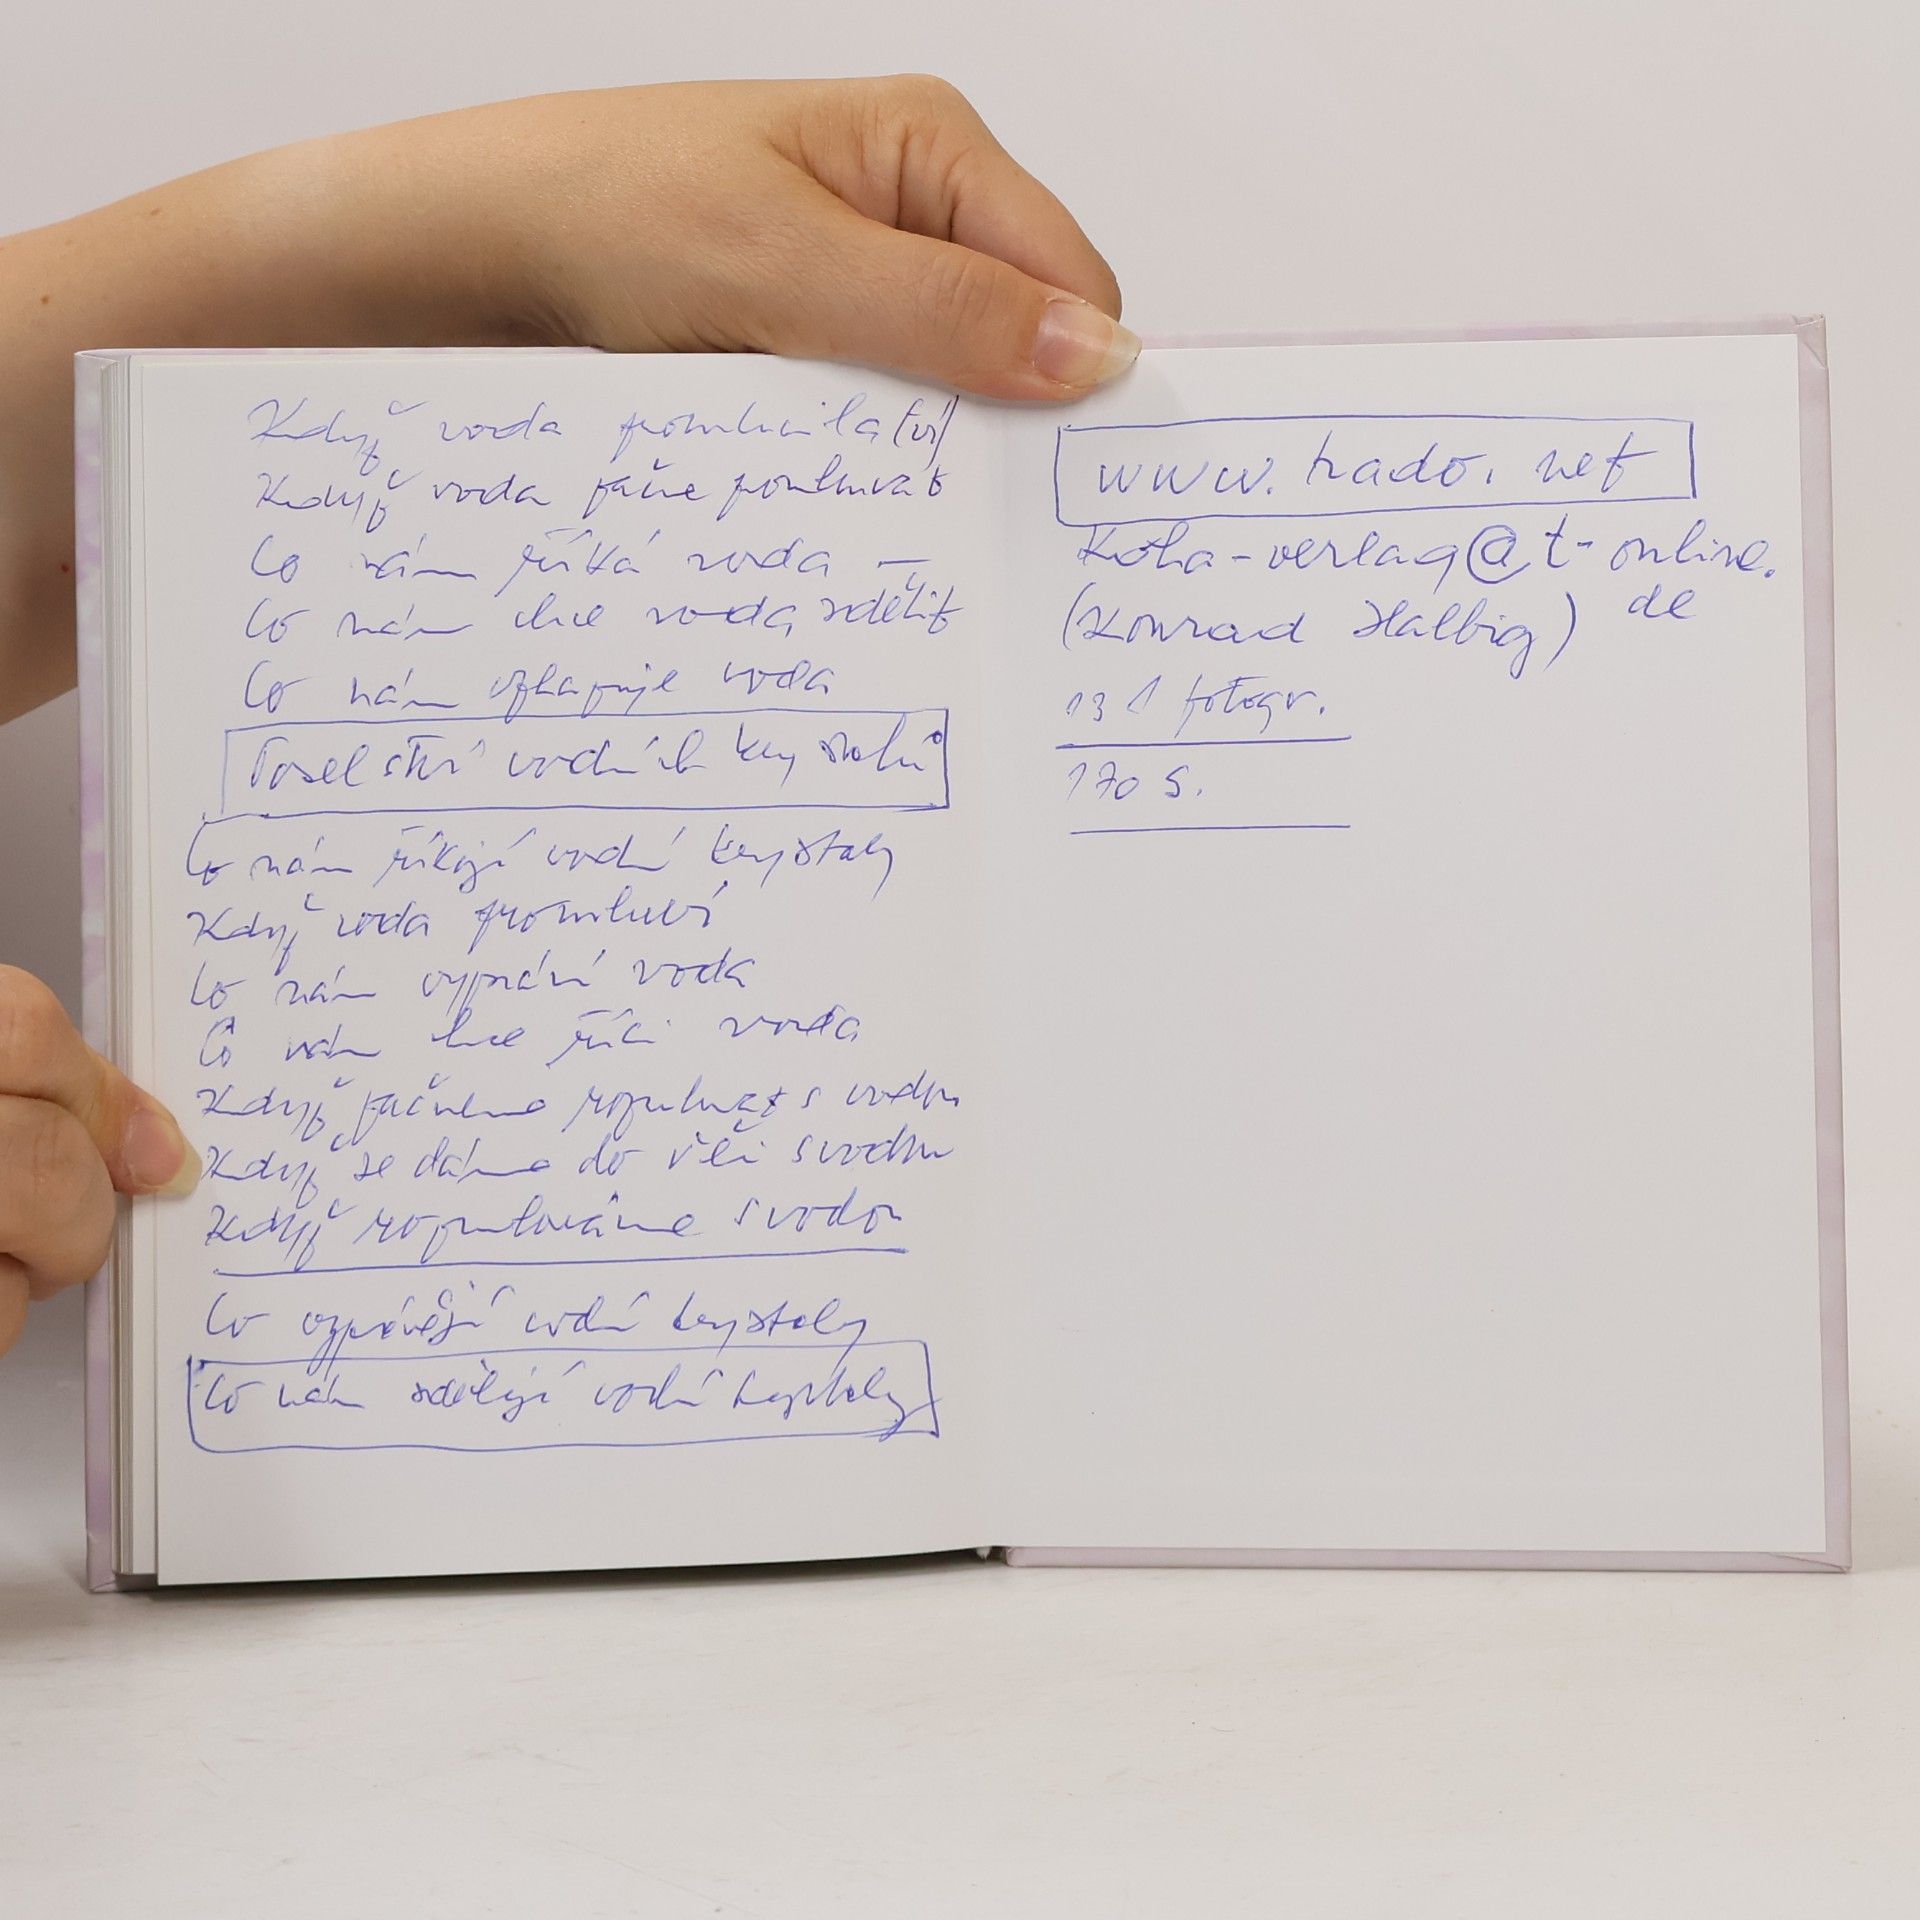 Když voda promluvila (ví)
Když voda začne promlouvat
Co nám říká voda —
Co nám chce voda sdělit
Co nám vzkazuje voda
Poselství vodních krystalů
Co nám říkají vodní krystaly
Když voda promluví
Co nám vypráví voda
Co nám chce říci voda
Když začneme rozmlouvat s vodou
Když se dáme do řeči s vodou
Když rozmlouváme s vodou
Co vyprávějí vodní krystaly
Co nám sdělují vodní krystaly
www.hado.net
Koha-verlag@t-online.
de
(Konrad Halbig)
131 fotogr.
170 s.